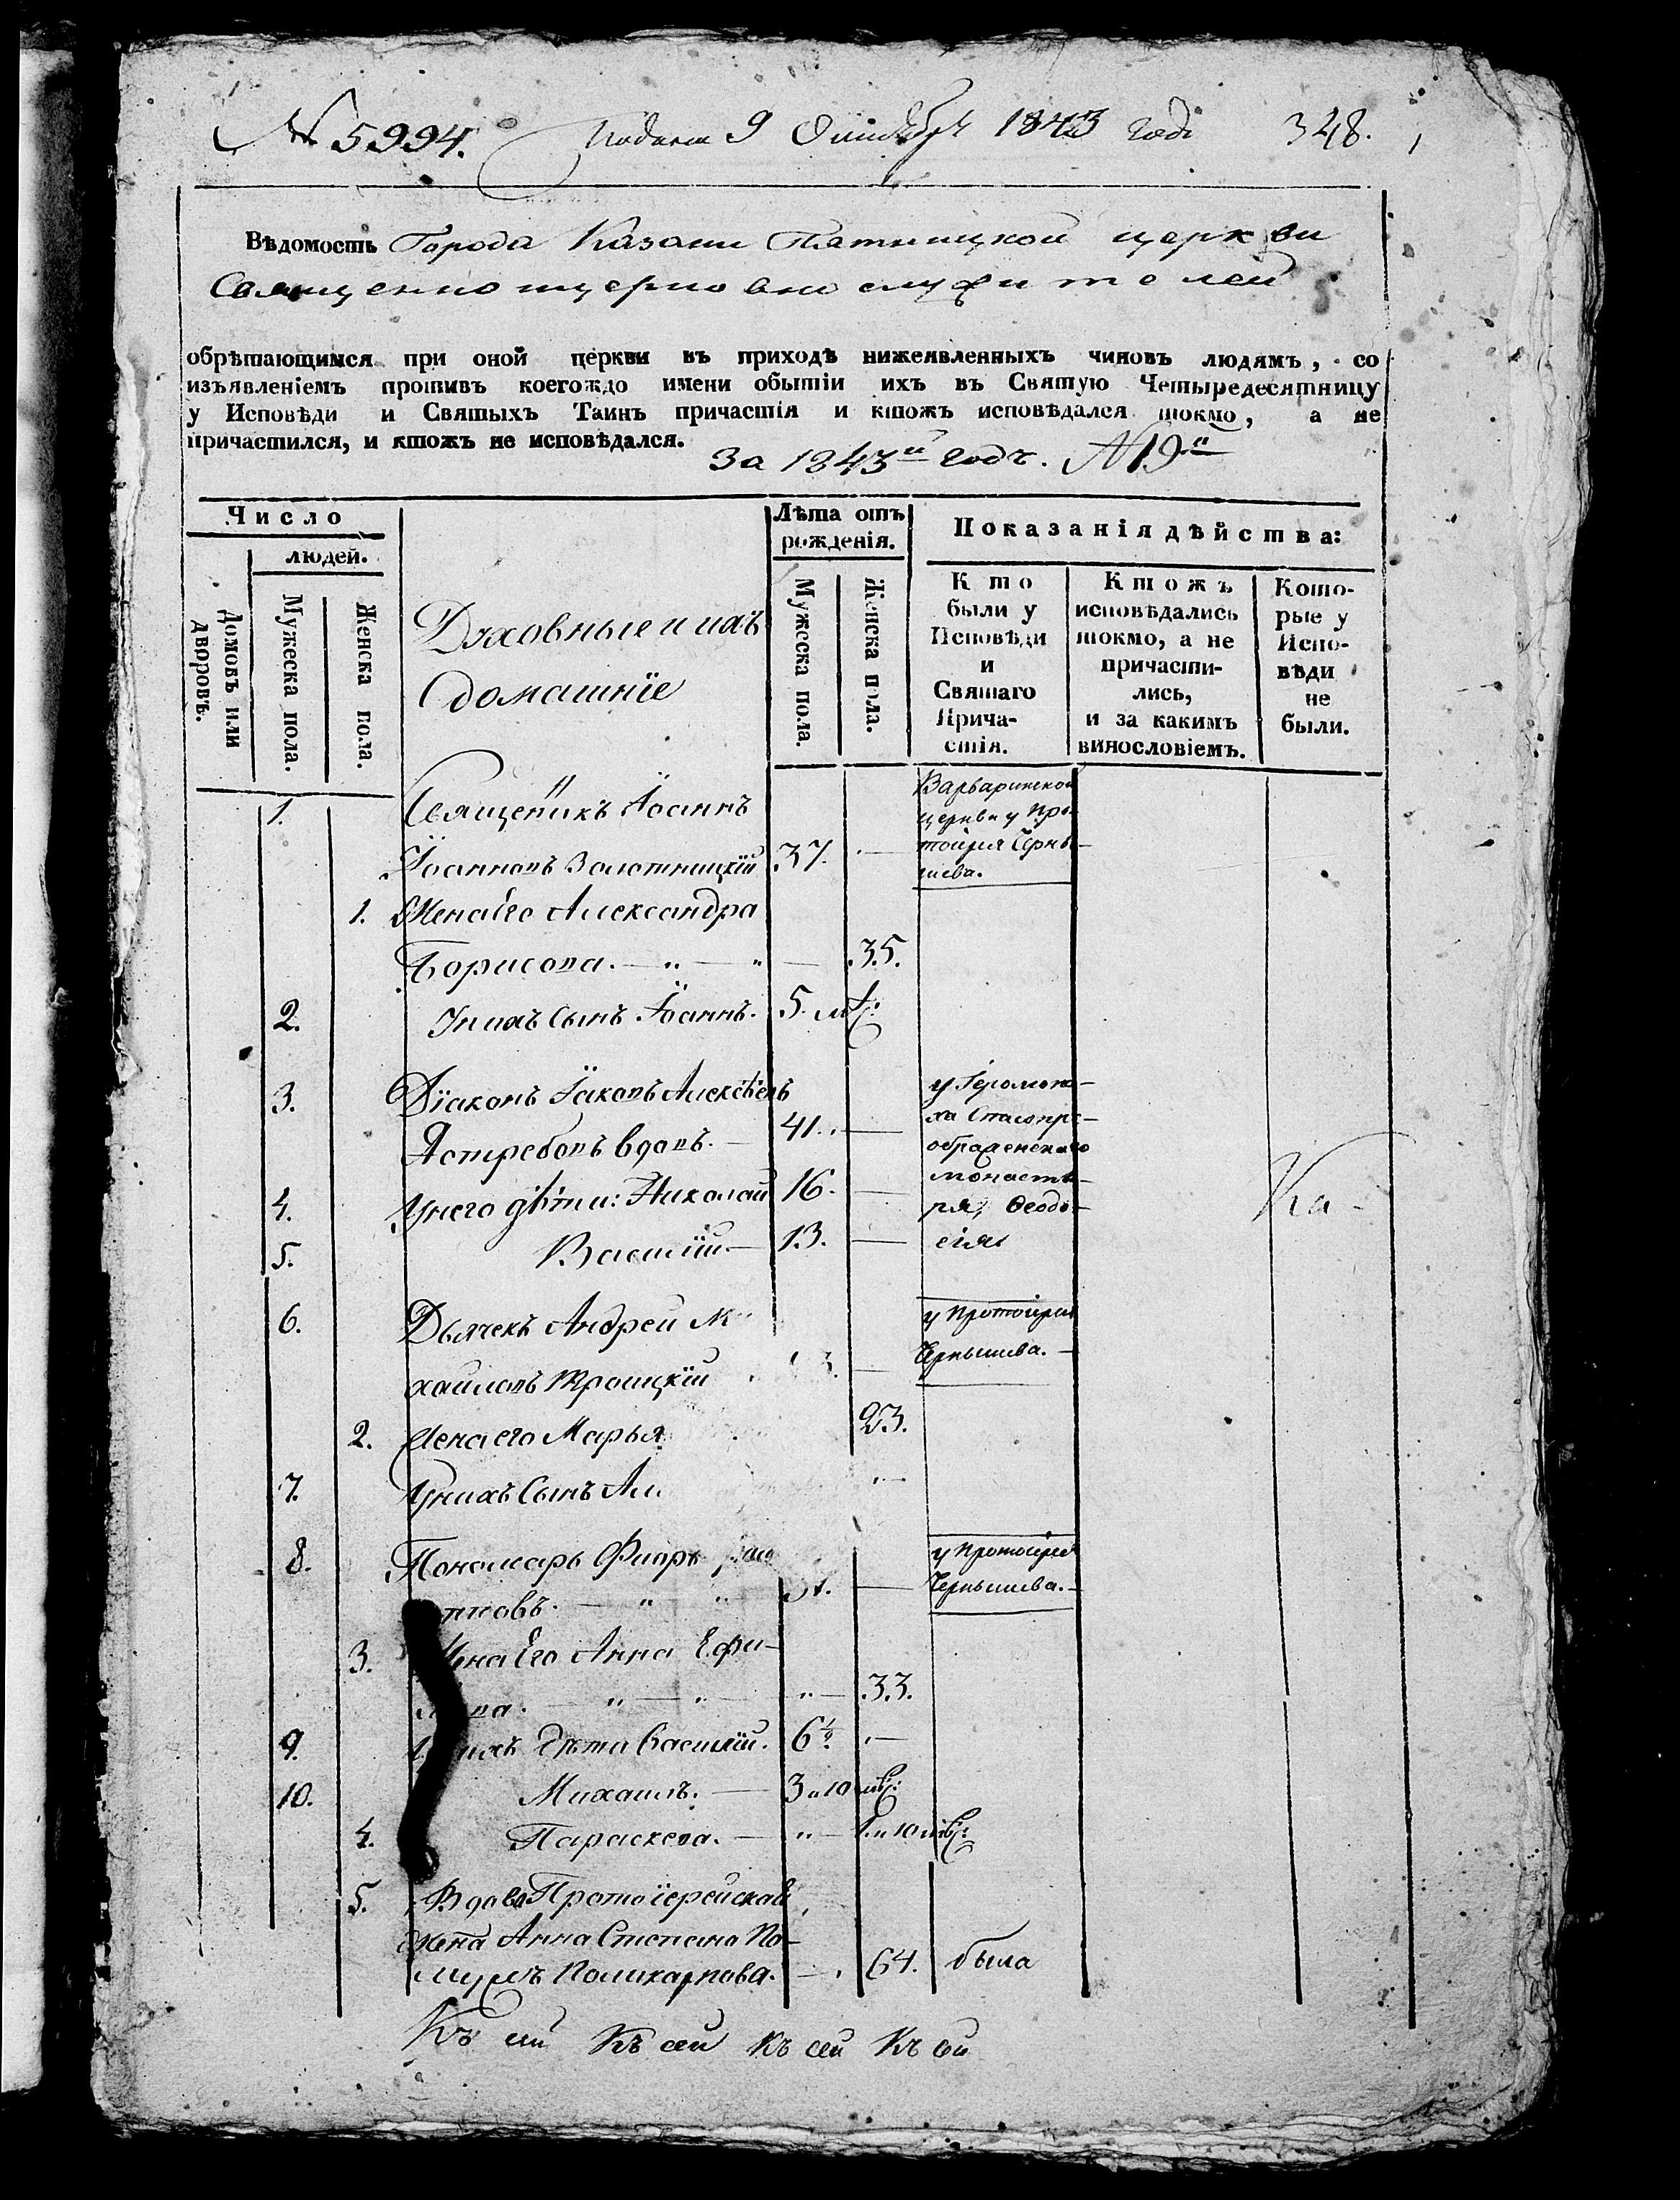 № 5994. Подана 9 Октября 1843 года 348.
Вѣдомость Города Казани Пятницкой церкви
Священноцерковнослужителей
обрѣтающимся при оной церкви въ приходѣ нижеявленныхъ чиновъ людямъ, со
изъявленіемъ противъ коегождо имени обытіи ихъ въ Святую Четыредесятницу
у Исповѣди и Святыхъ Таинъ причастія и ктожъ исповѣдался токмо, а не
причастился, и ктожъ не исповѣдался.
За 1843й годъ. №19й
Число
людей.
Домовъ или дворовъ.
Мужеска пола.
Женска пола.
Духовные и ихъ
домашніе
Лѣта отъ
рожденія.
Мужеска пола.
Женска пола.
Показанія дѣйства:
Кто
были у
Исповѣди
и
Святаго
Прича-
стія.
Ктожъ
исповѣдались
токмо, а не
причасти-
лись,
и за какимъ
винословіемъ.
Кото-
рые у
Испо-
вѣди
не
были.
1. Священникъ Іоаннъ
Іоанновъ Золотницкій 37. —
Варваринской
церкви у Про-
тоіерея Черны-
шева.
1. Жена его Александра
Борисова. — „ — „ — 35.
2. У нихъ сынъ Іоаннъ. 5. мц:
3. Діаконъ Іаковъ Алексѣевъ
Ястребовъ вдовъ. — 41. —
4. У него дѣти: Николай 16. —
5. Василій — 13. —
у Іеромона-
ха Спасопре-
ображенскаго
монасты-
ря, Ѳеодо-
сія
Ка-
6. Дьячекъ Андрей М
хайловъ Троицкій —
у Протоіерея
Чернышева. —
2. Жена его Марья 23.
7. У нихъ Сынъ Ал „ —
8. Пономарь Флоръ
новъ. — „ „ —
у Протоіерея
Чернышева. —
3. Жена Его Анна Ефи-
мова. — „ — „ — „ — 33.
9. У нихъ дѣти Василій. 6½ „ —
10. Михаилъ. — 3 и 10 мц:
4. Параскева. — „ — 1. и 10 мц:
5. Вдова Протоіерейская
жена Анна Степанова По-
Поликарпова. — 64. была
Къ сей Къ сей Къ сей Къ сей